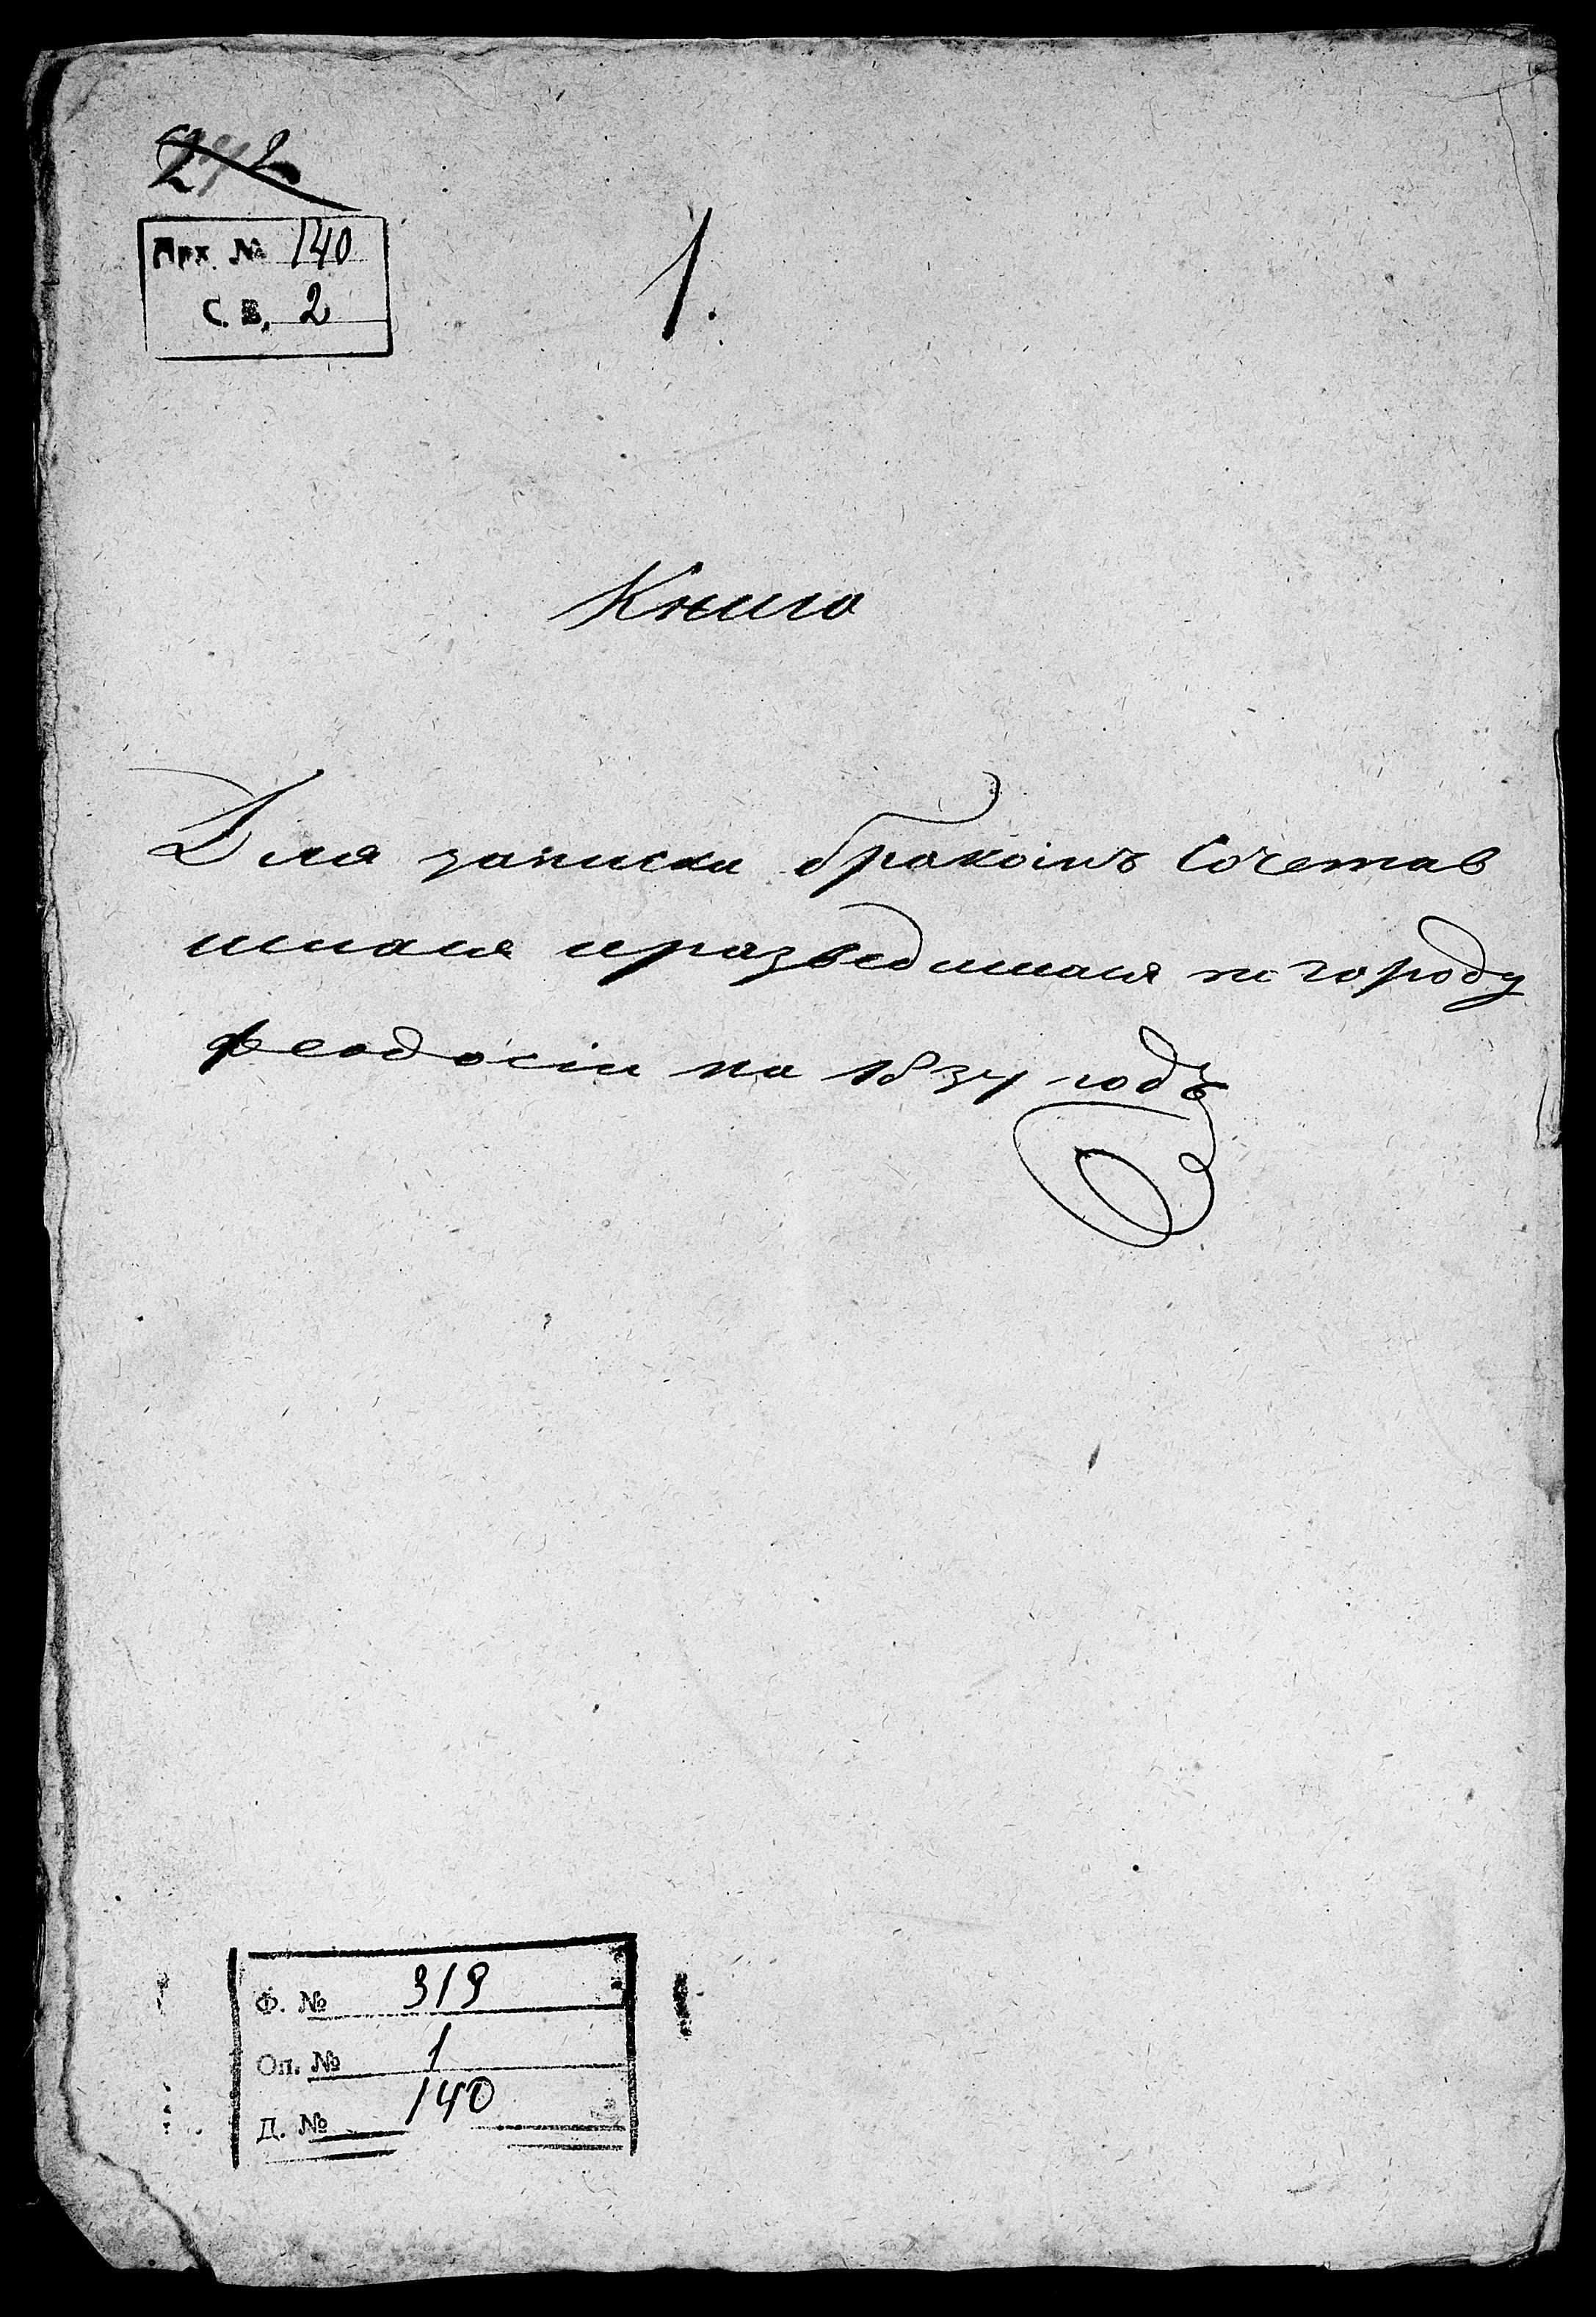 242
Арх. № 140
С. В. 2
1.
Книга
Для записки бракомъ Сочетав
шихся и разведшихся по городу
феодосіи на 1837 годъ
Ф. № 319
Оп. № 1
Д. № 140